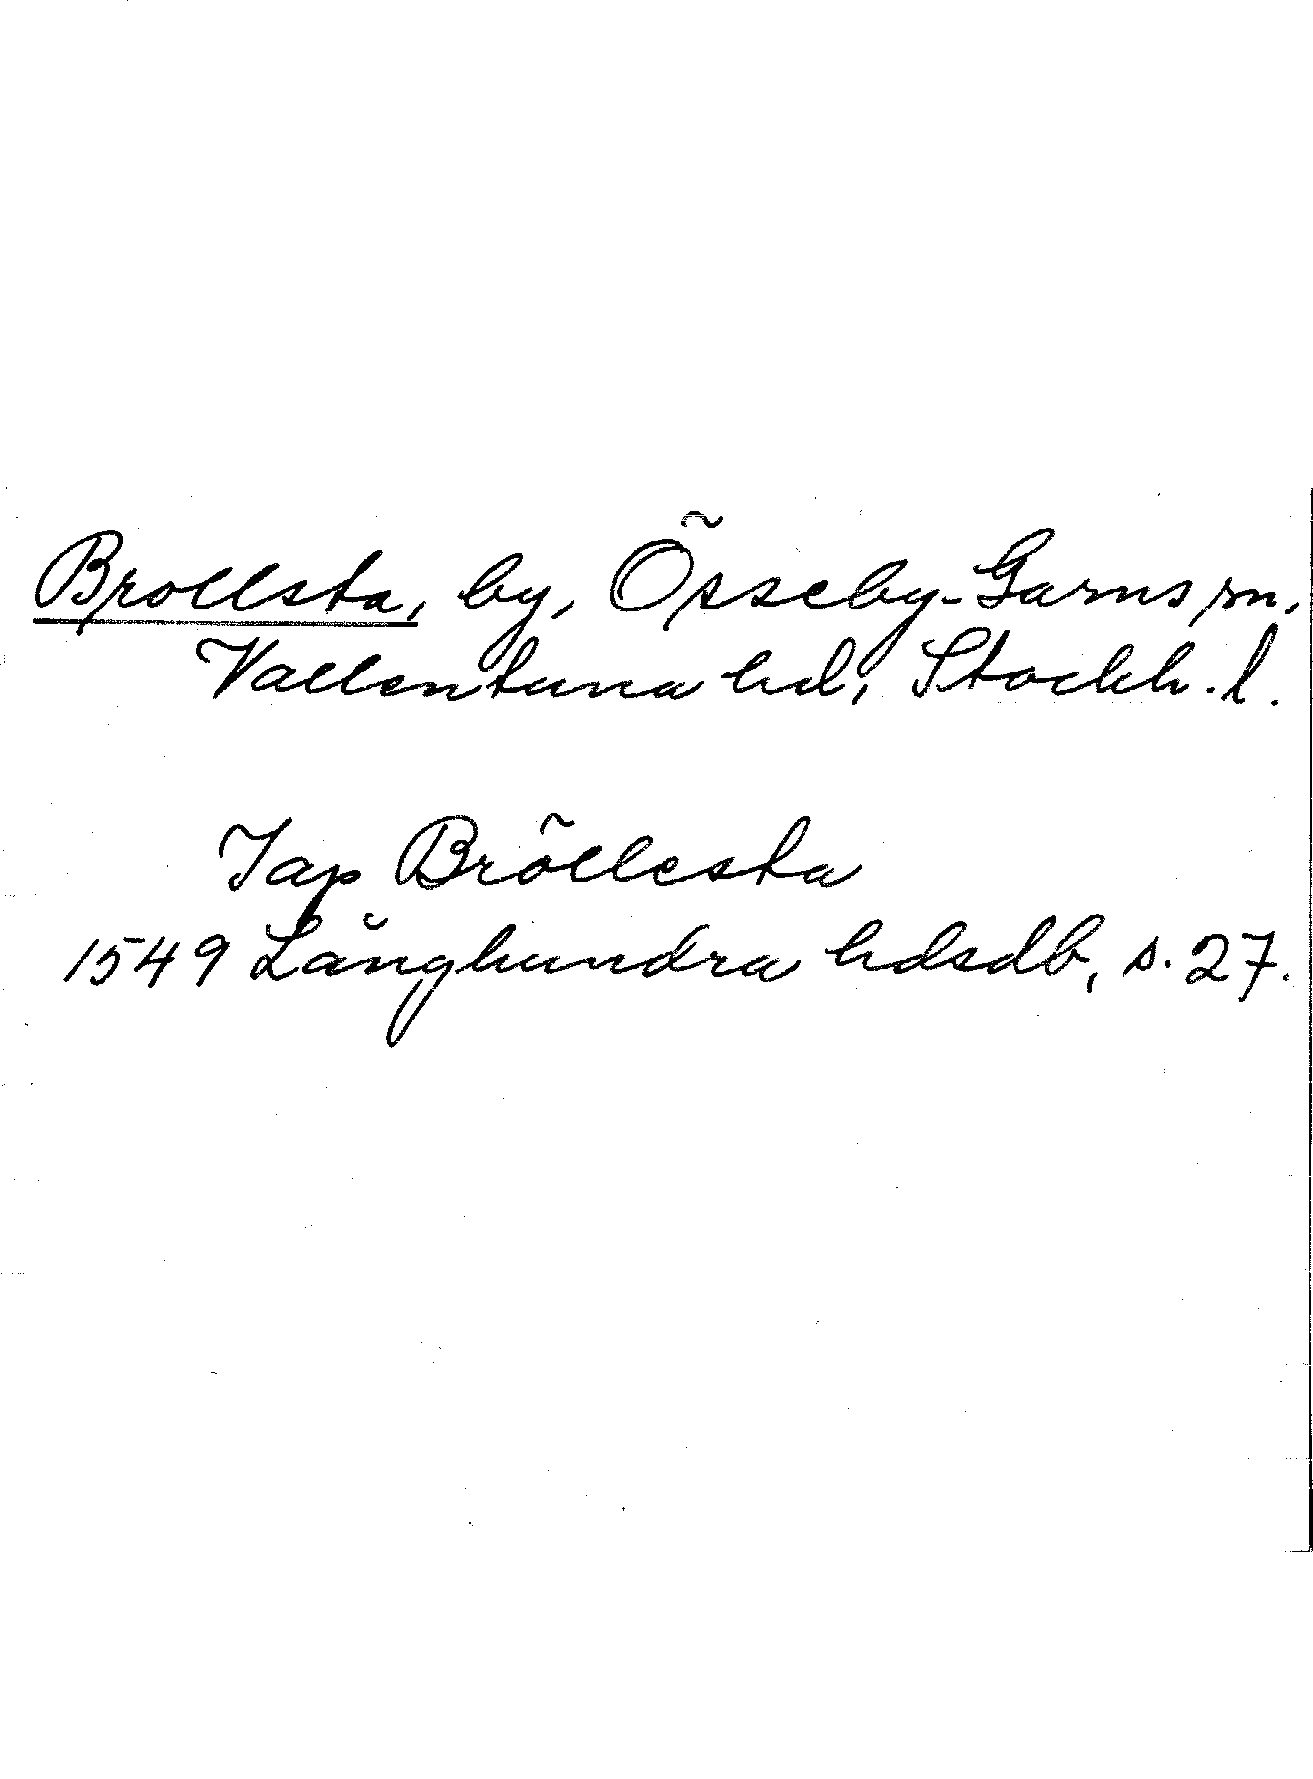 Brollsta, by, Össeby-Garns sn,
Vallentuna hd, Stockh. l.
Jap Bröllesta
1549 Långhundra hdsdb, s. 27.